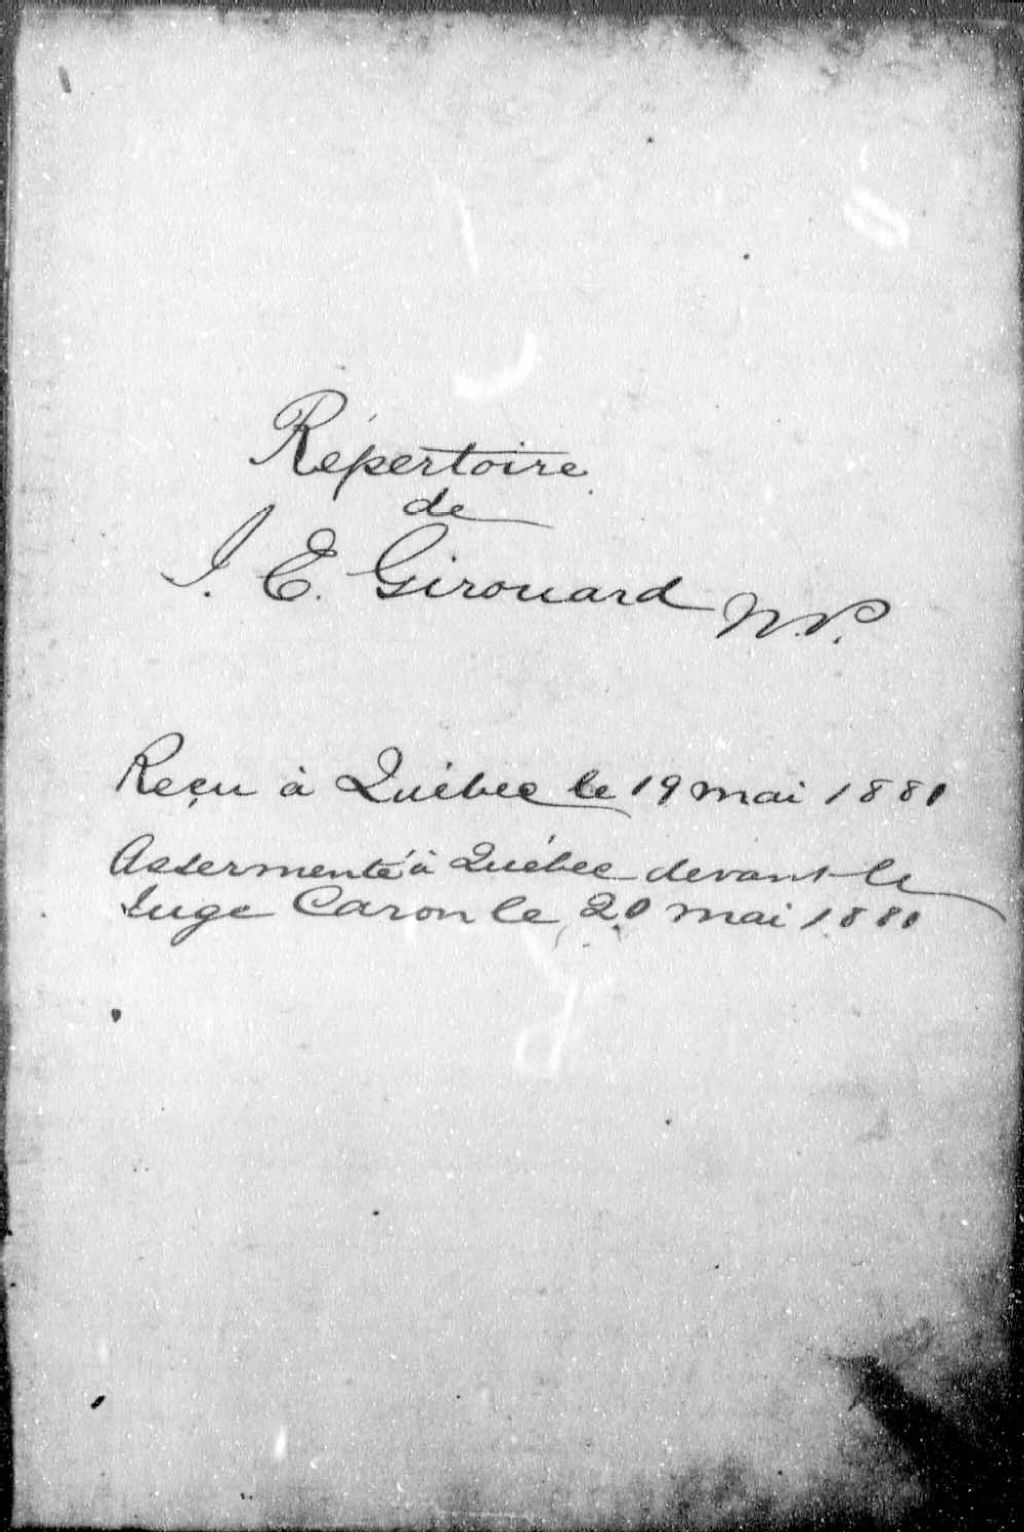 Répertoire
de
J. E. Girouard N.P.
Reçu à Québec le 19 mai 1881
Assermenté à Québec devant le
Juge Caron le 20 mai 1881